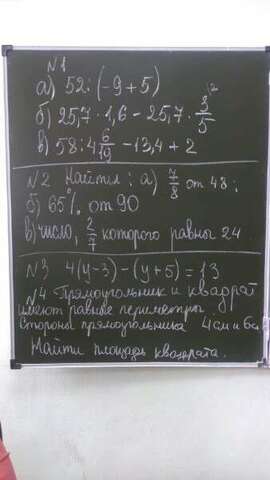 N1
а) 52:(-9+5)
б) 25,7 · 1,6 - 25,7 · 3/5
в) 58:4 6/19 - 13,4 + 2
N2 Найти: а) 7/8 от 48;
б) 65% от 90
в) число, 2/7 которого равны 24
N3 4(y-3)-(y+5)=13
N4 Прямоугольник и квадрат
имеют равные периметры
Стороны прямоугольника 4см и 6см
Найти площадь квадрата.